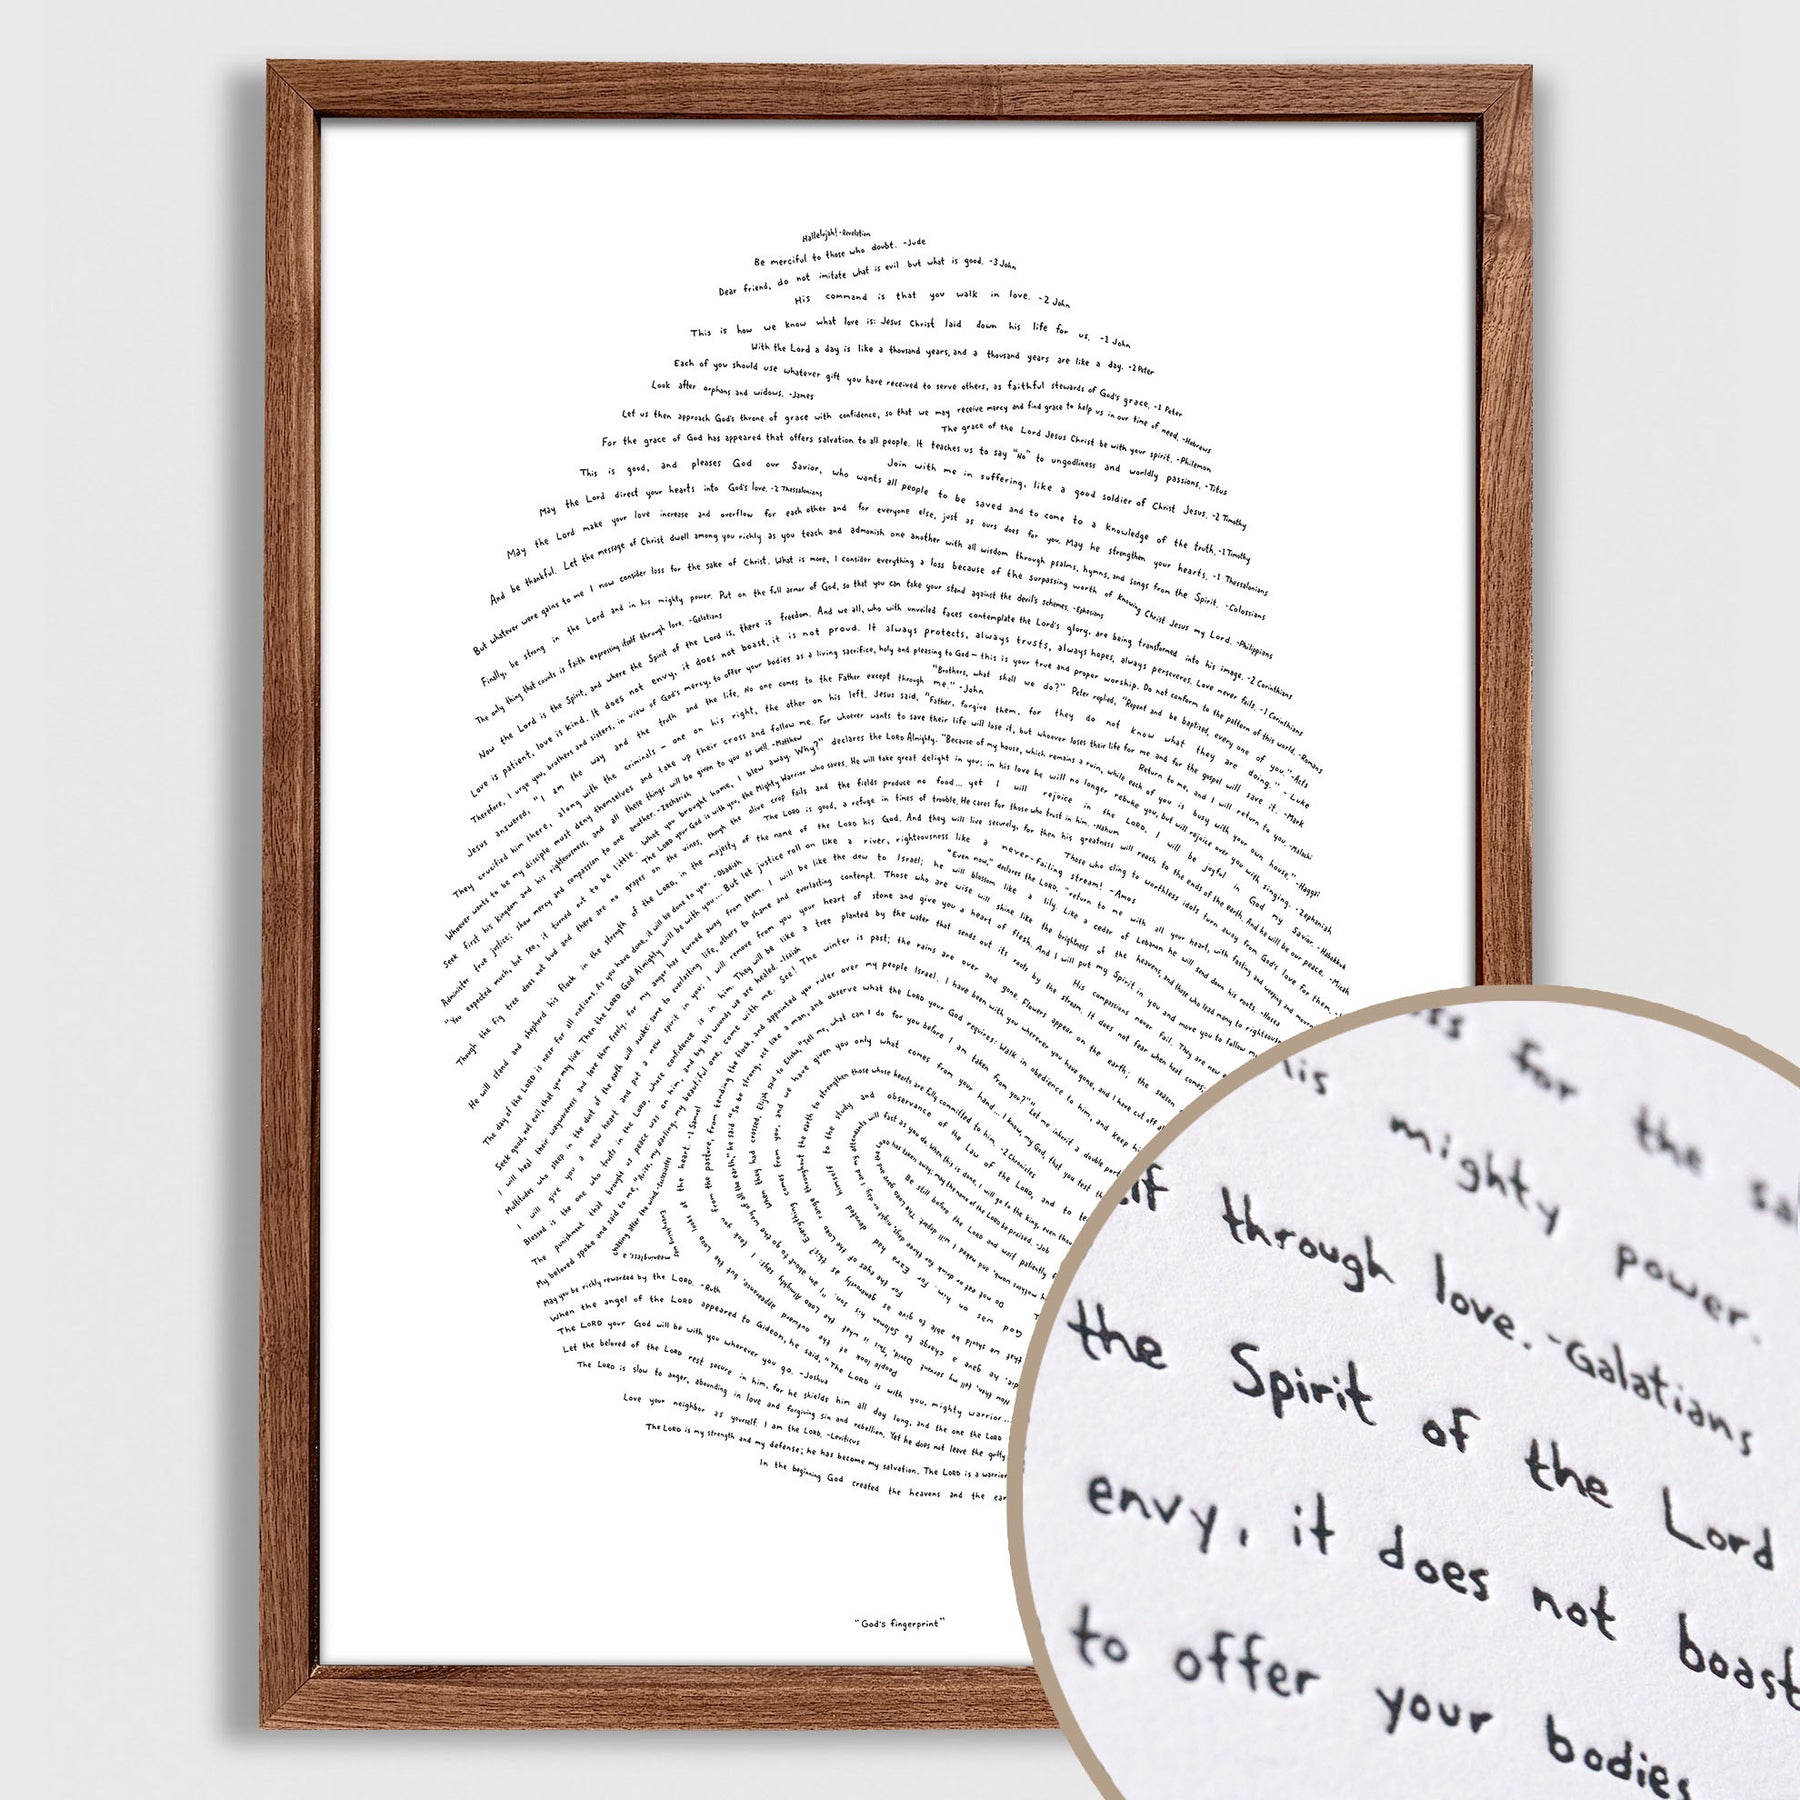 Hallelujah! -Revelation
Be merciful to those who doubt. -Jude
Dear friend, do not imitate what is evil but what is good. -3 John
His command is that you walk in love. -2 John
This is how we know what love is: Jesus Christ laid down his life for us. -1 John
With the Lord a day is like a thousand years, and a thousand years are like a day. -2 Peter
Each of you should use whatever gift you have received to serve others, as faithful stewards of God's grace. -1 Peter
Look after orphans and widows. -James
Let us then approach God's throne of grace with confidence, so that we may receive mercy and find grace to help us in our time of need. -Hebrews
The grace of the Lord Jesus Christ be with your spirit. -Philemon
For the grace of God has appeared that offers salvation to all people. It teaches us to say "No" to ungodliness and worldly passions. -Titus
Join with me in suffering, like a good soldier of Christ Jesus. -2 Timothy
This is good, and pleases God our Savior, who wants all people to be saved and to come to a knowledge of the truth. -1 Timothy
May the Lord direct your hearts into God's love. -2 Thessalonians
May the Lord make your love increase and overflow for each other and for everyone else, just as ours does for you. May he strengthen your hearts. -1 Thessalonians
And be thankful. Let the message of Christ dwell among you richly as you teach and admonish one another with all wisdom through psalms, hymns, and songs from the Spirit. -Colossians
But whatever were gains to me I now consider loss for the sake of Christ. What is more, I consider everything a loss because of the surpassing worth of knowing Christ Jesus my Lord. -Philippians
Finally, be strong in the Lord and in his mighty power. Put on the full armor of God, so that you can take your stand against the devil's schemes. -Ephesians
The only thing that counts is faith expressing itself through love. -Galatians
Now the Lord is the Spirit, and where the Spirit of the Lord is, there is freedom. And we all, who with unveiled faces contemplate the Lord's glory, are being transformed into his image. -2 Corinthians
Love is patient, love is kind. It does not envy, it does not boast, it is not proud. It always protects, always trusts, always hopes, always perseveres. Love never fails. -1 Corinthians
Therefore, I urge you, brothers and sisters, in view of God's mercy, to offer your bodies as a living sacrifice, holy and pleasing to God - this is your true and proper worship. Do not conform to the pattern of this world. -Romans
"Brothers, what shall we do?" Peter replied, "Repent and be baptised, every one of you." -Acts
Jesus answered, "I am the way and the truth and the life. No one comes to the Father except through me." -John
They crucified him there, along with the criminals - one on his right, the other on his left. Jesus said, "Father, forgive them, for they do not know what they are doing." - Luke
Whoever wants to be my disciple must deny themselves and take up their cross and follow me. For whoever wants to save their life will lose it, but whoever loses their life for me and for the gospel will save it. -Mark
Seek first his kingdom and his righteousness, and all these things will be given to you as well. -Matthew
Return to me, and I will return to you. -Malachi
Administer true justice; show mercy and compassion to one another. -Zechariah
"You expected much, but see, it turned out to be little. What you brought home, I blew away. Why?" declares the LORD Almighty. "Because of my house, which remains a ruin, while each of you is busy with your own house." -Haggai
The LORD your God is with you, the Mighty Warrior who saves. He will take great delight in you; in his love he will no longer rebuke you, but will rejoice over you with singing. -Zephaniah
Though the fig tree does not bud and there are no grapes on the vines, though the olive crop fails and the fields produce no food... yet I will rejoice in the LORD, I will be joyful in God my Savior. -Habakkuk
The LORD is good, a refuge in times of trouble. He cares for those who trust in him. -Nahum
He will stand and shepherd his flock in the strength of the LORD, in the majesty of the name of the LORD his God. And they will live securely, for then his greatness will reach to the ends of the earth. And he will be our peace. -Micah
Those who cling to worthless idols turn away from God's love for them.
The day of the LORD is near for all nations. As you have done, it will be done to you. -Obadiah
Seek good, not evil, that you may live. Then the LORD God Almighty will be with you... But let justice roll on like a river, righteousness like a never-failing stream! -Amos
"Even now," declares the LORD, "return to me with all your heart, with fasting and weeping and
I will heal their waywardness and love them freely, for my anger has turned away from them. I will be like the dew to Israel; he will blossom like a lily. Like a cedar of Lebanon he will send down his roots. -Hosea
Multitudes who sleep in the dust of the earth will awake: some to everlasting life, others to shame and everlasting contempt. Those who are wise will shine like the brightness of the heavens, and those who lead many to
I will give you a new heart and put a new spirit in you; I will remove from you your heart of stone and give you a heart of flesh. And I will put my Spirit in you and move you to follow my
His compassions never fail. They are new
Blessed is the one who trusts in the LORD, whose confidence is in him. They will be like a tree planted by the water that sends out its roots by the stream. It does not fear when heat comes;
The punishment that brought us peace was on him, and by his wounds we are healed. -Isaiah
My beloved spoke and said to me, "Arise, my darling, my beautiful one, come with me. See! The winter is past; the rains are over and gone. Flowers appear on the earth; the season
Everything was meaningless, a chasing after the wind. -Ecclesiastes
May you be richly rewarded by the LORD. -Ruth
When the angel of the LORD appeared to Gideon, he said, "The LORD is with you, mighty warrior...
The LORD your God will be with you wherever you go. -Joshua
Let the beloved of the LORD rest secure in him, for he shields him all day long, and the one the LORD
The LORD is slow to anger, abounding in love and forgiving sin and rebellion. Yet he does not leave the guilty
Love your neighbor as yourself. I am the LORD. -Leviticus
The LORD is my strength and my defense; he has become my salvation. The LORD is a warrior
In the beginning God created the heavens and the ear
"God's fingerprint"
for the
his mighty power.
through love. -Galatians
the Spirit of the Lord
envy, it does not boast
to offer your bodies